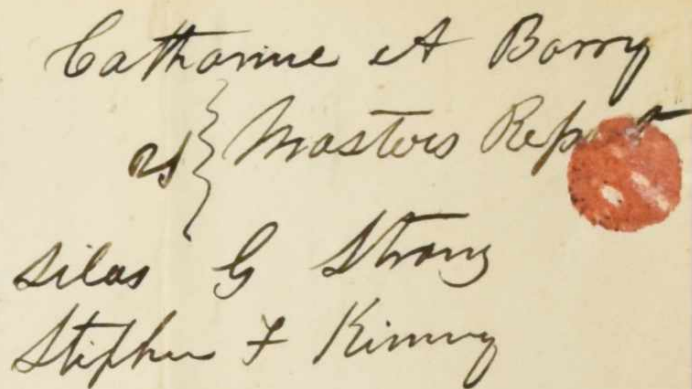 Catharine A Barry
vs } Masters Report
Silas G Strong
Stephen F Kinney